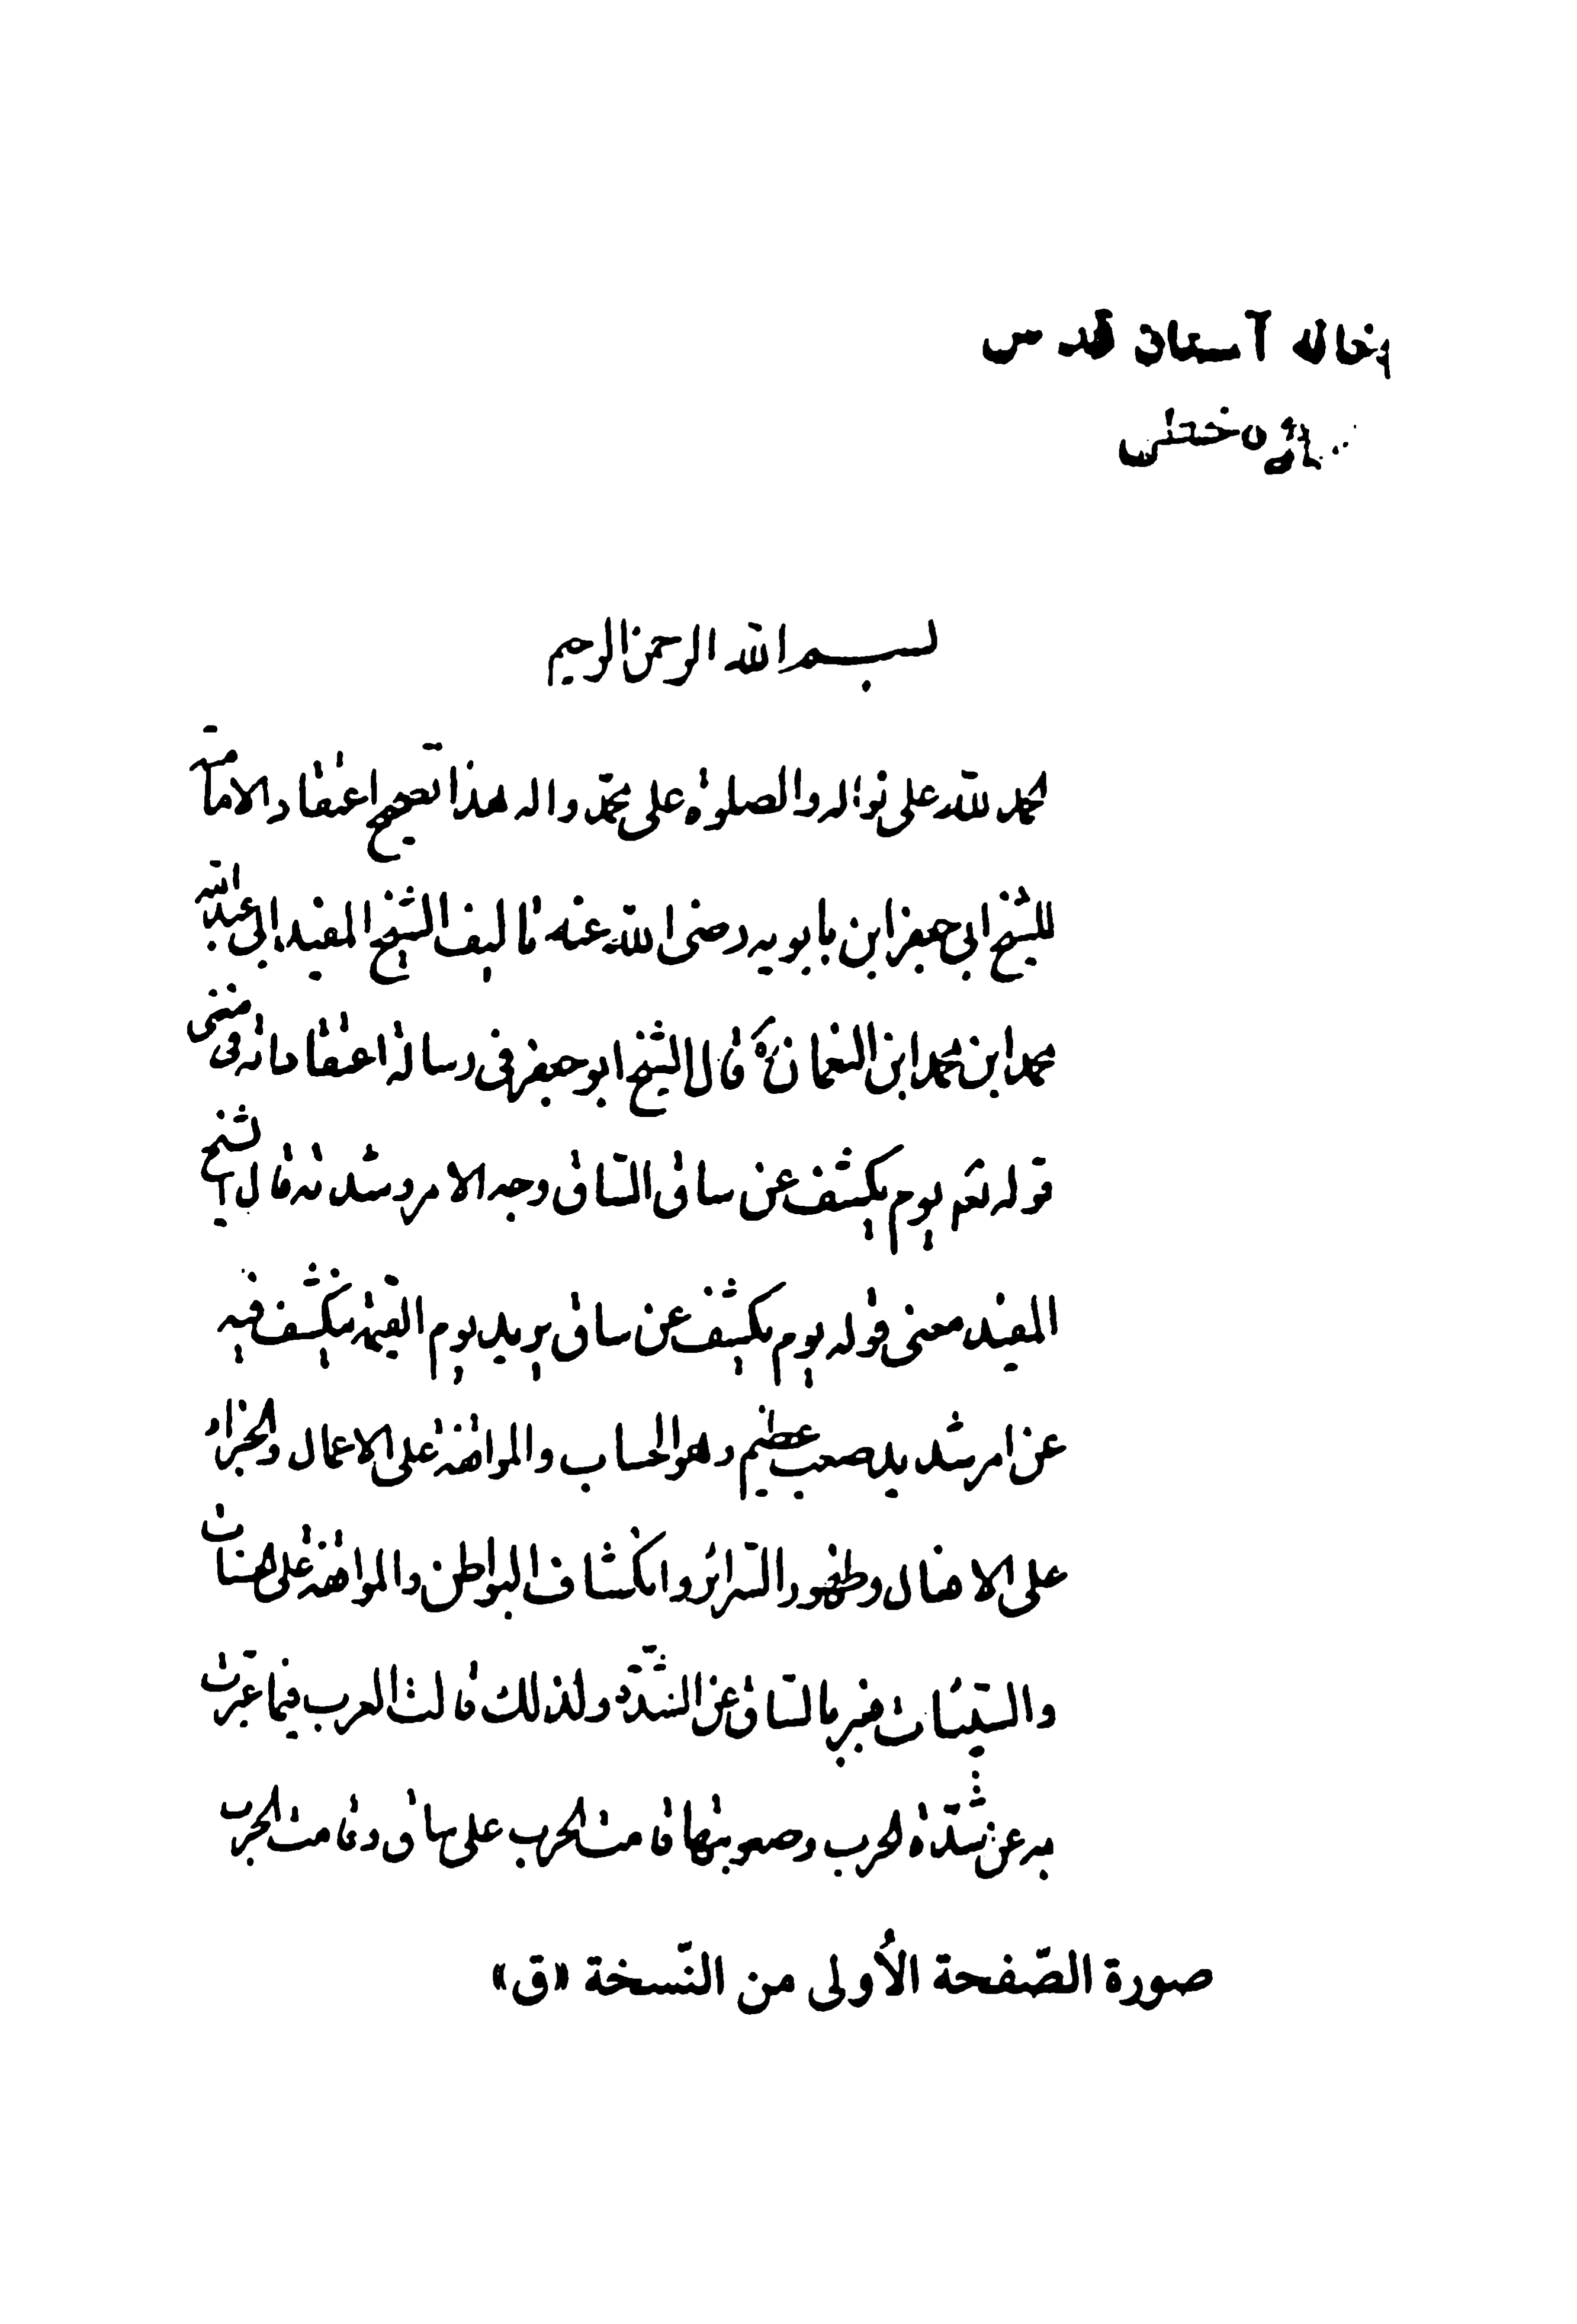 آستان قدس
بسم الله الرحمن الرحيم
الحمد لله على نواله والصلوة على محمد واله هذا تصحيح اعتقاد الامامية
للشيخ ابي جعفر ابن بابويه رضى الله عنه تاليف الشيخ المفيد ابى عبدالله
محمد ابن محمد ابن النعمان قال الشيخ ابو جعفر فى رسالة اعتقاداته فى معنى
قوله تعم يوم يكشف عن ساق الساق وجه الامر وشدته قال الشيخ
المفيد معنى قوله يوم يكشف عن ساق يريد يوم القيمة ينكشف فيه
عن امر شديد صعب عظيم وهو الحساب والمواقفة على الاعمال والجزاء
على الافعال وظهور السرائر وانكشاف البواطن والمواقفة على الحسنات
والسيئات فعبر بالساق عن الشدة ولذلك قالت العرب فيما عبرت
به عن شدة الحرب وصعوبتها قامت الحرب على ساق وقامت الحرب
صورة الصّفحة الأولى من النّسخة «ق»